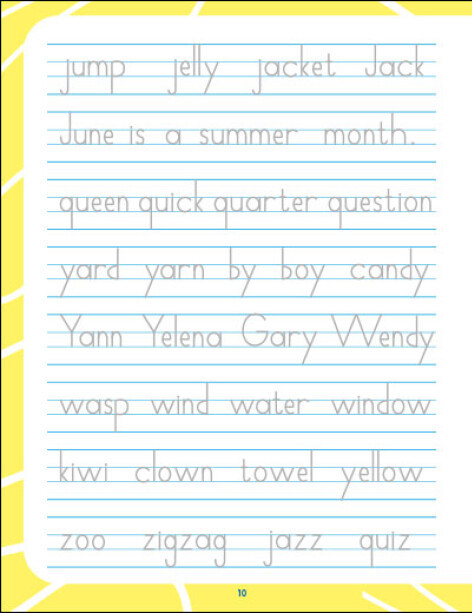 jump jelly jacket Jack
June is a summer month.
queen quick quarter question
yard yarn by boy candy
Yann Yelena Gary Wendy
wasp wind water window
kiwi clown towel yellow
zoo zigzag jazz quiz
10